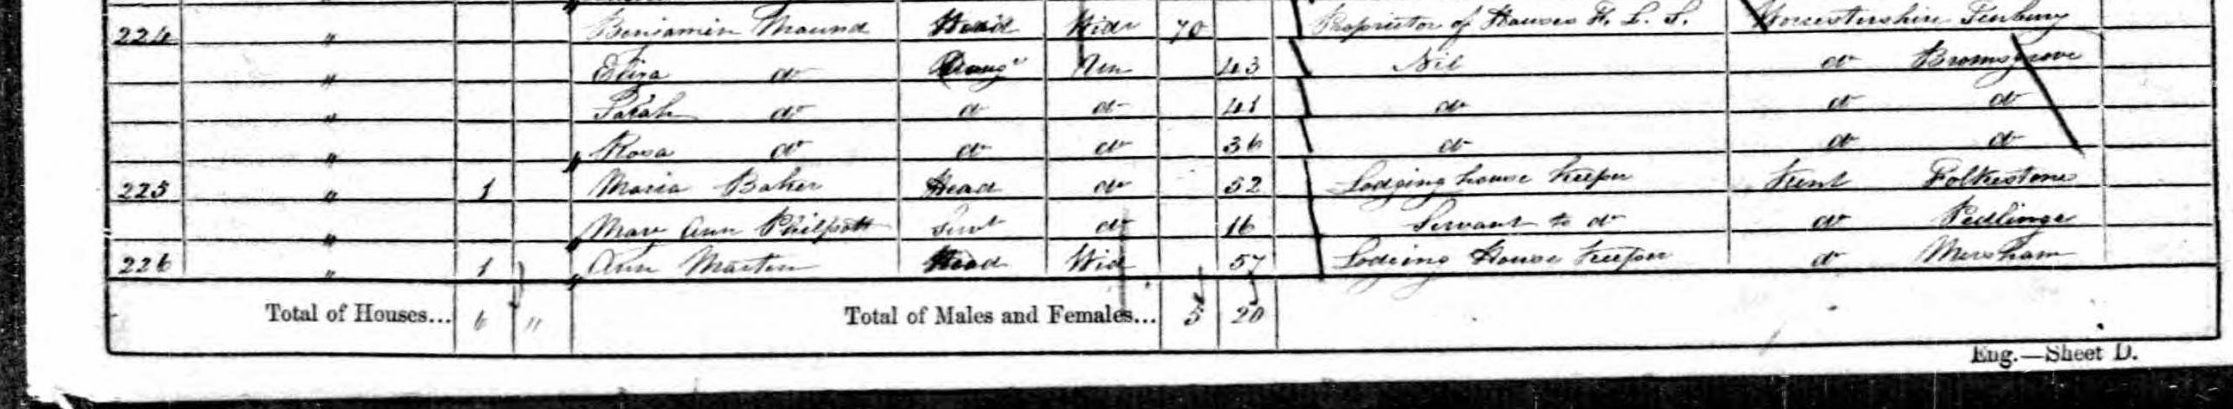 224 " Benjamin Maund Head Widr 70 Proprietor of Houses F. L. S. Worcestershire Tenbury
" Eliza do Daugr Un 43 Nil do Bromsgrove
" Sarah do do do 41 do do do
" Rosa do do do 36 do do do
225 " 1 Maria Baker Head do 52 Lodging house Keeper Kent Folkestone
" Mary Ann Philpott Servt do 16 Servant to do do Pedlinge
226 " 1 Ann Martin Head Wid 57 Lodging House Keeper do Mersham
Total of Houses... 6 " Total of Males and Females... 5 20
Eng.—Sheet D.